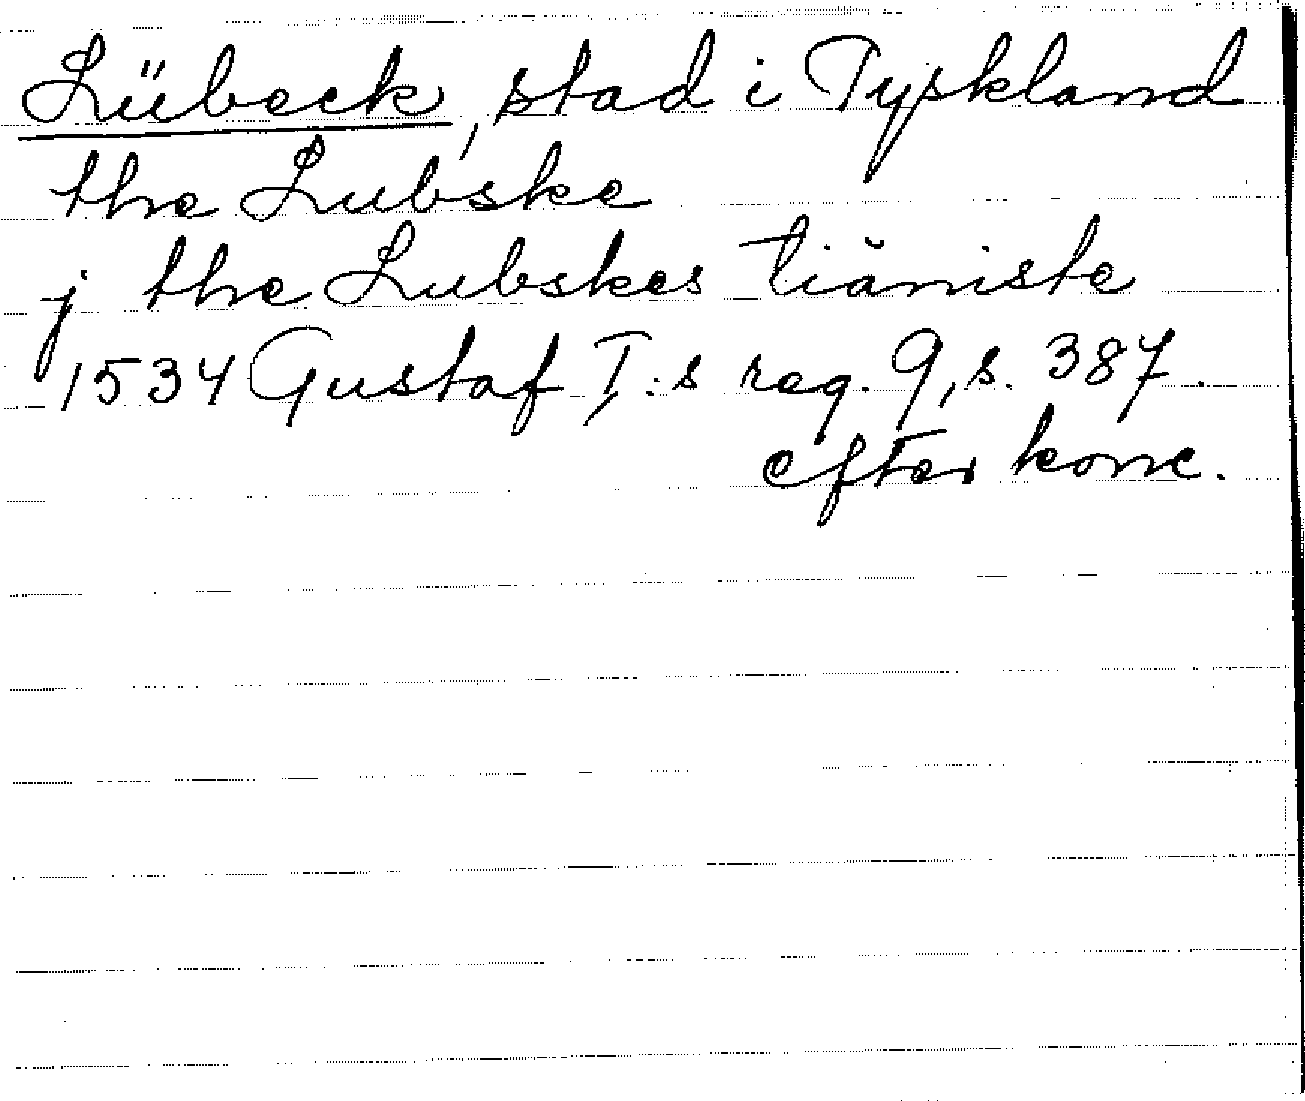 Lübeck, stad i Tyskland
the Lubske
j the Lubskes tiäniste
1534 Gustaf I:s reg. 9, s. 387.
efter konc.